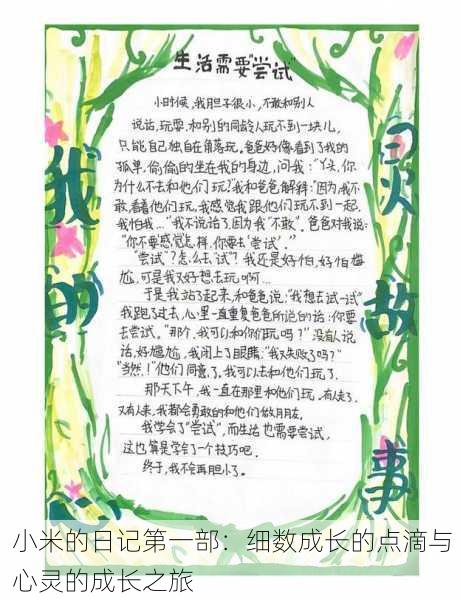 生活需要“尝试”
小时候,我胆子很小,不敢和别人
说话,玩耍,和别的同龄人玩不到一块儿,
只能自己独自在角落玩。爸爸好像看到了我的
孤单,偷偷的坐在我的身边,问我:“丫头,你
为什么不去和他们玩?”我和爸爸解释:“因为,我不
敢,看着他们玩,我感觉我跟他们玩不到一起.
我怕我…”我不说话了,因为我“不敢”。爸爸对我说:
“你不要感觉怎样,你要去‘尝试’.”
“尝试”?怎么去“试”?我还是好怕,好怕尴
尬,可是我又好想去玩啊...
于是我站了起来,和爸爸说:“我想去试一试”
我跑了过去,心里一直重复爸爸所说的话:你要
去尝试。“那个,我可以和你们玩吗?”没有人说
话,好尴尬,我闭上了眼睛,“我又失败了吗?”
“当然!”他们同意了,我可以去和他们玩了.
那天下午,我一直在那里和他们玩,有人走了.
又有人来,我都会勇敢的和他们做朋友.
我学会了“尝试”,而生活也需要尝试,
这也算是学会了一个技巧吧.
终于,我不会再胆小了.
我的心
灵故事
小米的日记第一部：细数成长的点滴与
心灵的成长之旅